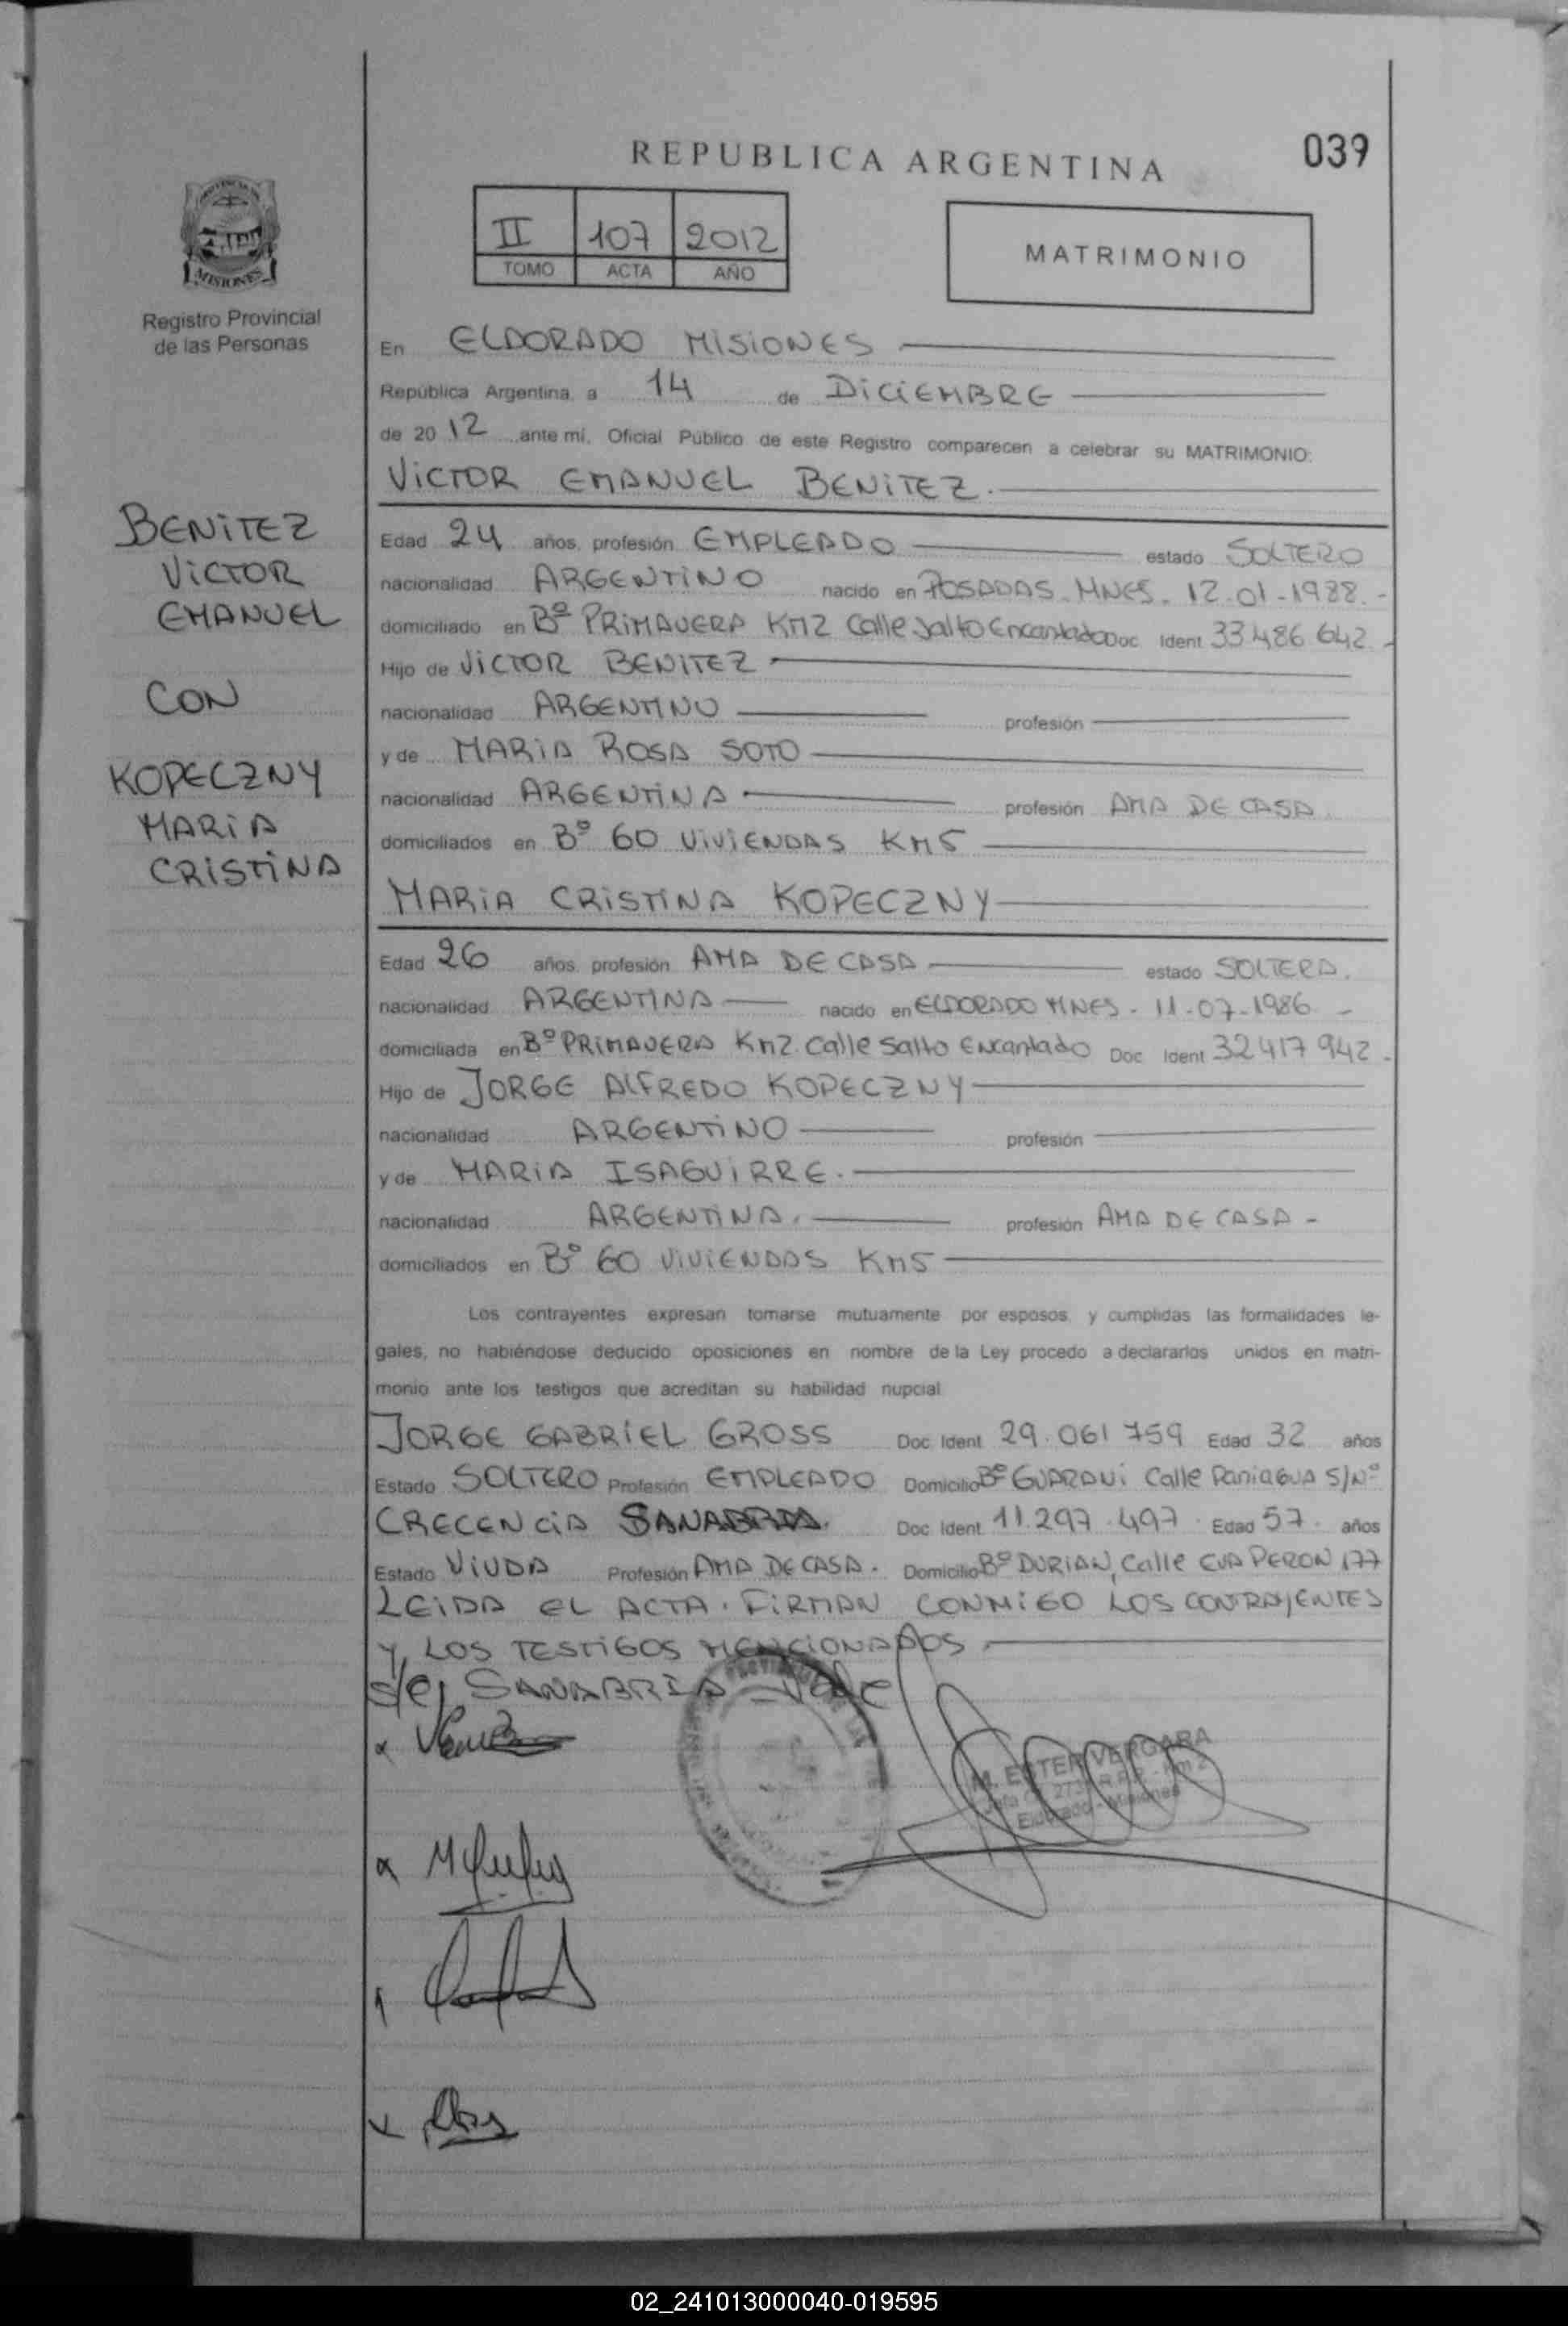 REPUBLICA ARGENTINA
039
PROVINCIA DE
MISIONES
Registro Provincial
de las Personas
II 107 2012
TOMO ACTA AÑO
MATRIMONIO
En ELDORADO MISIONES
República Argentina, a 14 de DICIEMBRE
de 2012 ante mi, Oficial Público de este Registro comparecen a celebrar su MATRIMONIO:
VICTOR EMANUEL BENITEZ.
BENITEZ
VICTOR
EMANUEL
CON
KOPECZNY
MARIA
CRISTINA
Edad 24 años, profesión EMPLEADO estado SOLTERO
nacionalidad ARGENTINO nacido en POSADAS - MNES. 12.01-1988.-
domiciliado en Bº PRIMAVERA KM2 Calle Salto Encantado Doc Ident 33 486 642.-
Hijo de VICTOR BENITEZ
nacionalidad ARGENTINO profesión
y de MARIA ROSA SOTO
nacionalidad ARGENTINA profesión AMA DE CASA.
domiciliados en Bº 60 VIVIENDAS KM5
MARIA CRISTINA KOPECZNY
Edad 26 años, profesión AMA DE CASA estado SOLTERA.
nacionalidad ARGENTINA nacido en ELDORADO MNES - 11-07-1986 -
domiciliada en Bº PRIMAVERA KM2. Calle Salto Encantado Doc Ident 32417 942.
Hijo de JORGE ALFREDO KOPECZNY
nacionalidad ARGENTINO profesión
y de MARIA ISAGUIRRE.
nacionalidad ARGENTINA. profesión AMA DE CASA -
domiciliados en Bº 60 VIVIENDAS KM5
Los contrayentes expresan tomarse mutuamente por esposos, y cumplidas las formalidades le-
gales, no habiéndose deducido oposiciones en nombre de la Ley procedo a declararlos unidos en matri-
monio ante los testigos que acreditan su habilidad nupcial
JORGE GABRIEL GROSS Doc Ident 29.061 759 Edad 32 años
Estado SOLTERO Profesión EMPLEADO Domicilio Bº GUARANI Calle PaniaGUA S/Nº
CRECENCIA SANABRIA. Doc Ident 11.297.497. Edad 57. años
Estado VIUDA Profesión AMA DE CASA. Domicilio Bº DURIAN, Calle EVA PERON 177
LEIDA EL ACTA. FIRMAN CONMIGO LOS CONTRAYENTES
Y LOS TESTIGOS MENCIONADOS.
s/e/ SANABRIA - Vale
M. ESTER VERGARA
Eldorado - Misiones
02_241013000040-019595